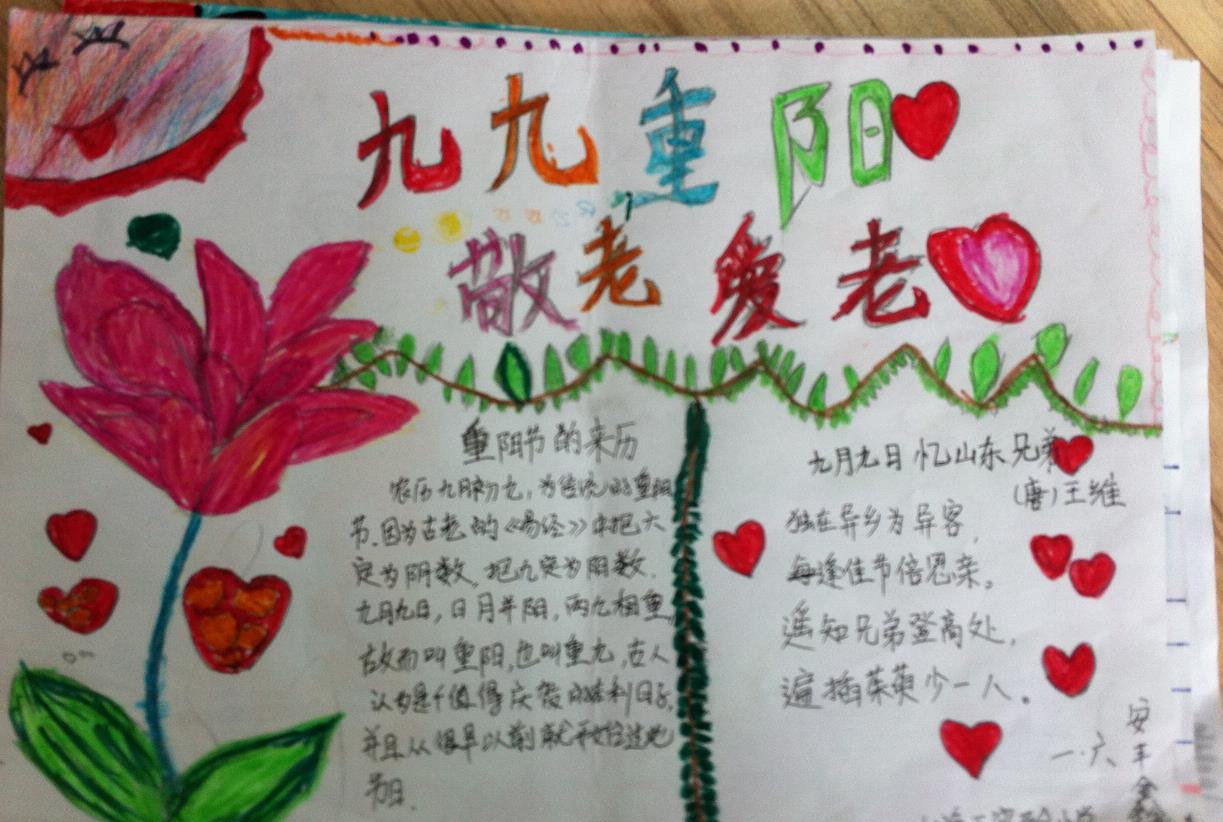 九九重阳
敬老爱老
重阳节的来历
农历九月初九,为传统的重阳
节。因为古老的《易经》中把六
定为阴数,把九定为阳数,
九月九日,日月并阳,两九相重,
故而叫重阳,也叫重九,古人
认为是个值得庆贺的吉利日子,
并且从很早以前就开始过此
节日.
九月九日忆山东兄弟
(唐)王维
独在异乡为异客,
每逢佳节倍思亲。
遥知兄弟登高处,
遍插茱萸少一人。
一·六
安丰